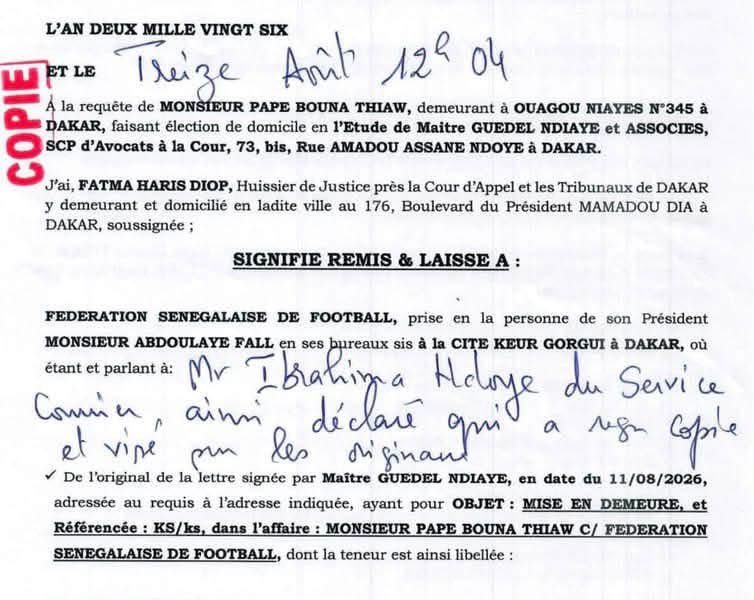 L'AN DEUX MILLE VINGT SIX
ET LE Treize Août 12h 04
COPIE
A la requête de MONSIEUR PAPE BOUNA THIAW, demeurant à OUAGOU NIAYES N°345 à
DAKAR, faisant élection de domicile en l'Etude de Maitre GUEDEL NDIAYE et ASSOCIES,
SCP d'Avocats à la Cour, 73, bis, Rue AMADOU ASSANE NDOYE à DAKAR.
J'ai, FATMA HARIS DIOP, Huissier de Justice près la Cour d'Appel et les Tribunaux de DAKAR
y demeurant et domicilié en ladite ville au 176, Boulevard du Président MAMADOU DIA à
DAKAR, soussignée ;
SIGNIFIE REMIS & LAISSE A :
FEDERATION SENEGALAISE DE FOOTBALL, prise en la personne de son Président
MONSIEUR ABDOULAYE FALL en ses bureaux sis à la CITE KEUR GORGUI à DAKAR, où
étant et parlant à: Mr Ibrahima Ndoye du Service
Courrier, ainsi déclaré qui a reçu copie
et visé les originaux
✓ De l'original de la lettre signée par Maître GUEDEL NDIAYE, en date du 11/08/2026,
adressée au requis à l'adresse indiquée, ayant pour OBJET : MISE EN DEMEURE, et
Référencée : KS/ks, dans l'affaire : MONSIEUR PAPE BOUNA THIAW C/ FEDERATION
SENEGALAISE DE FOOTBALL, dont la teneur est ainsi libellée :